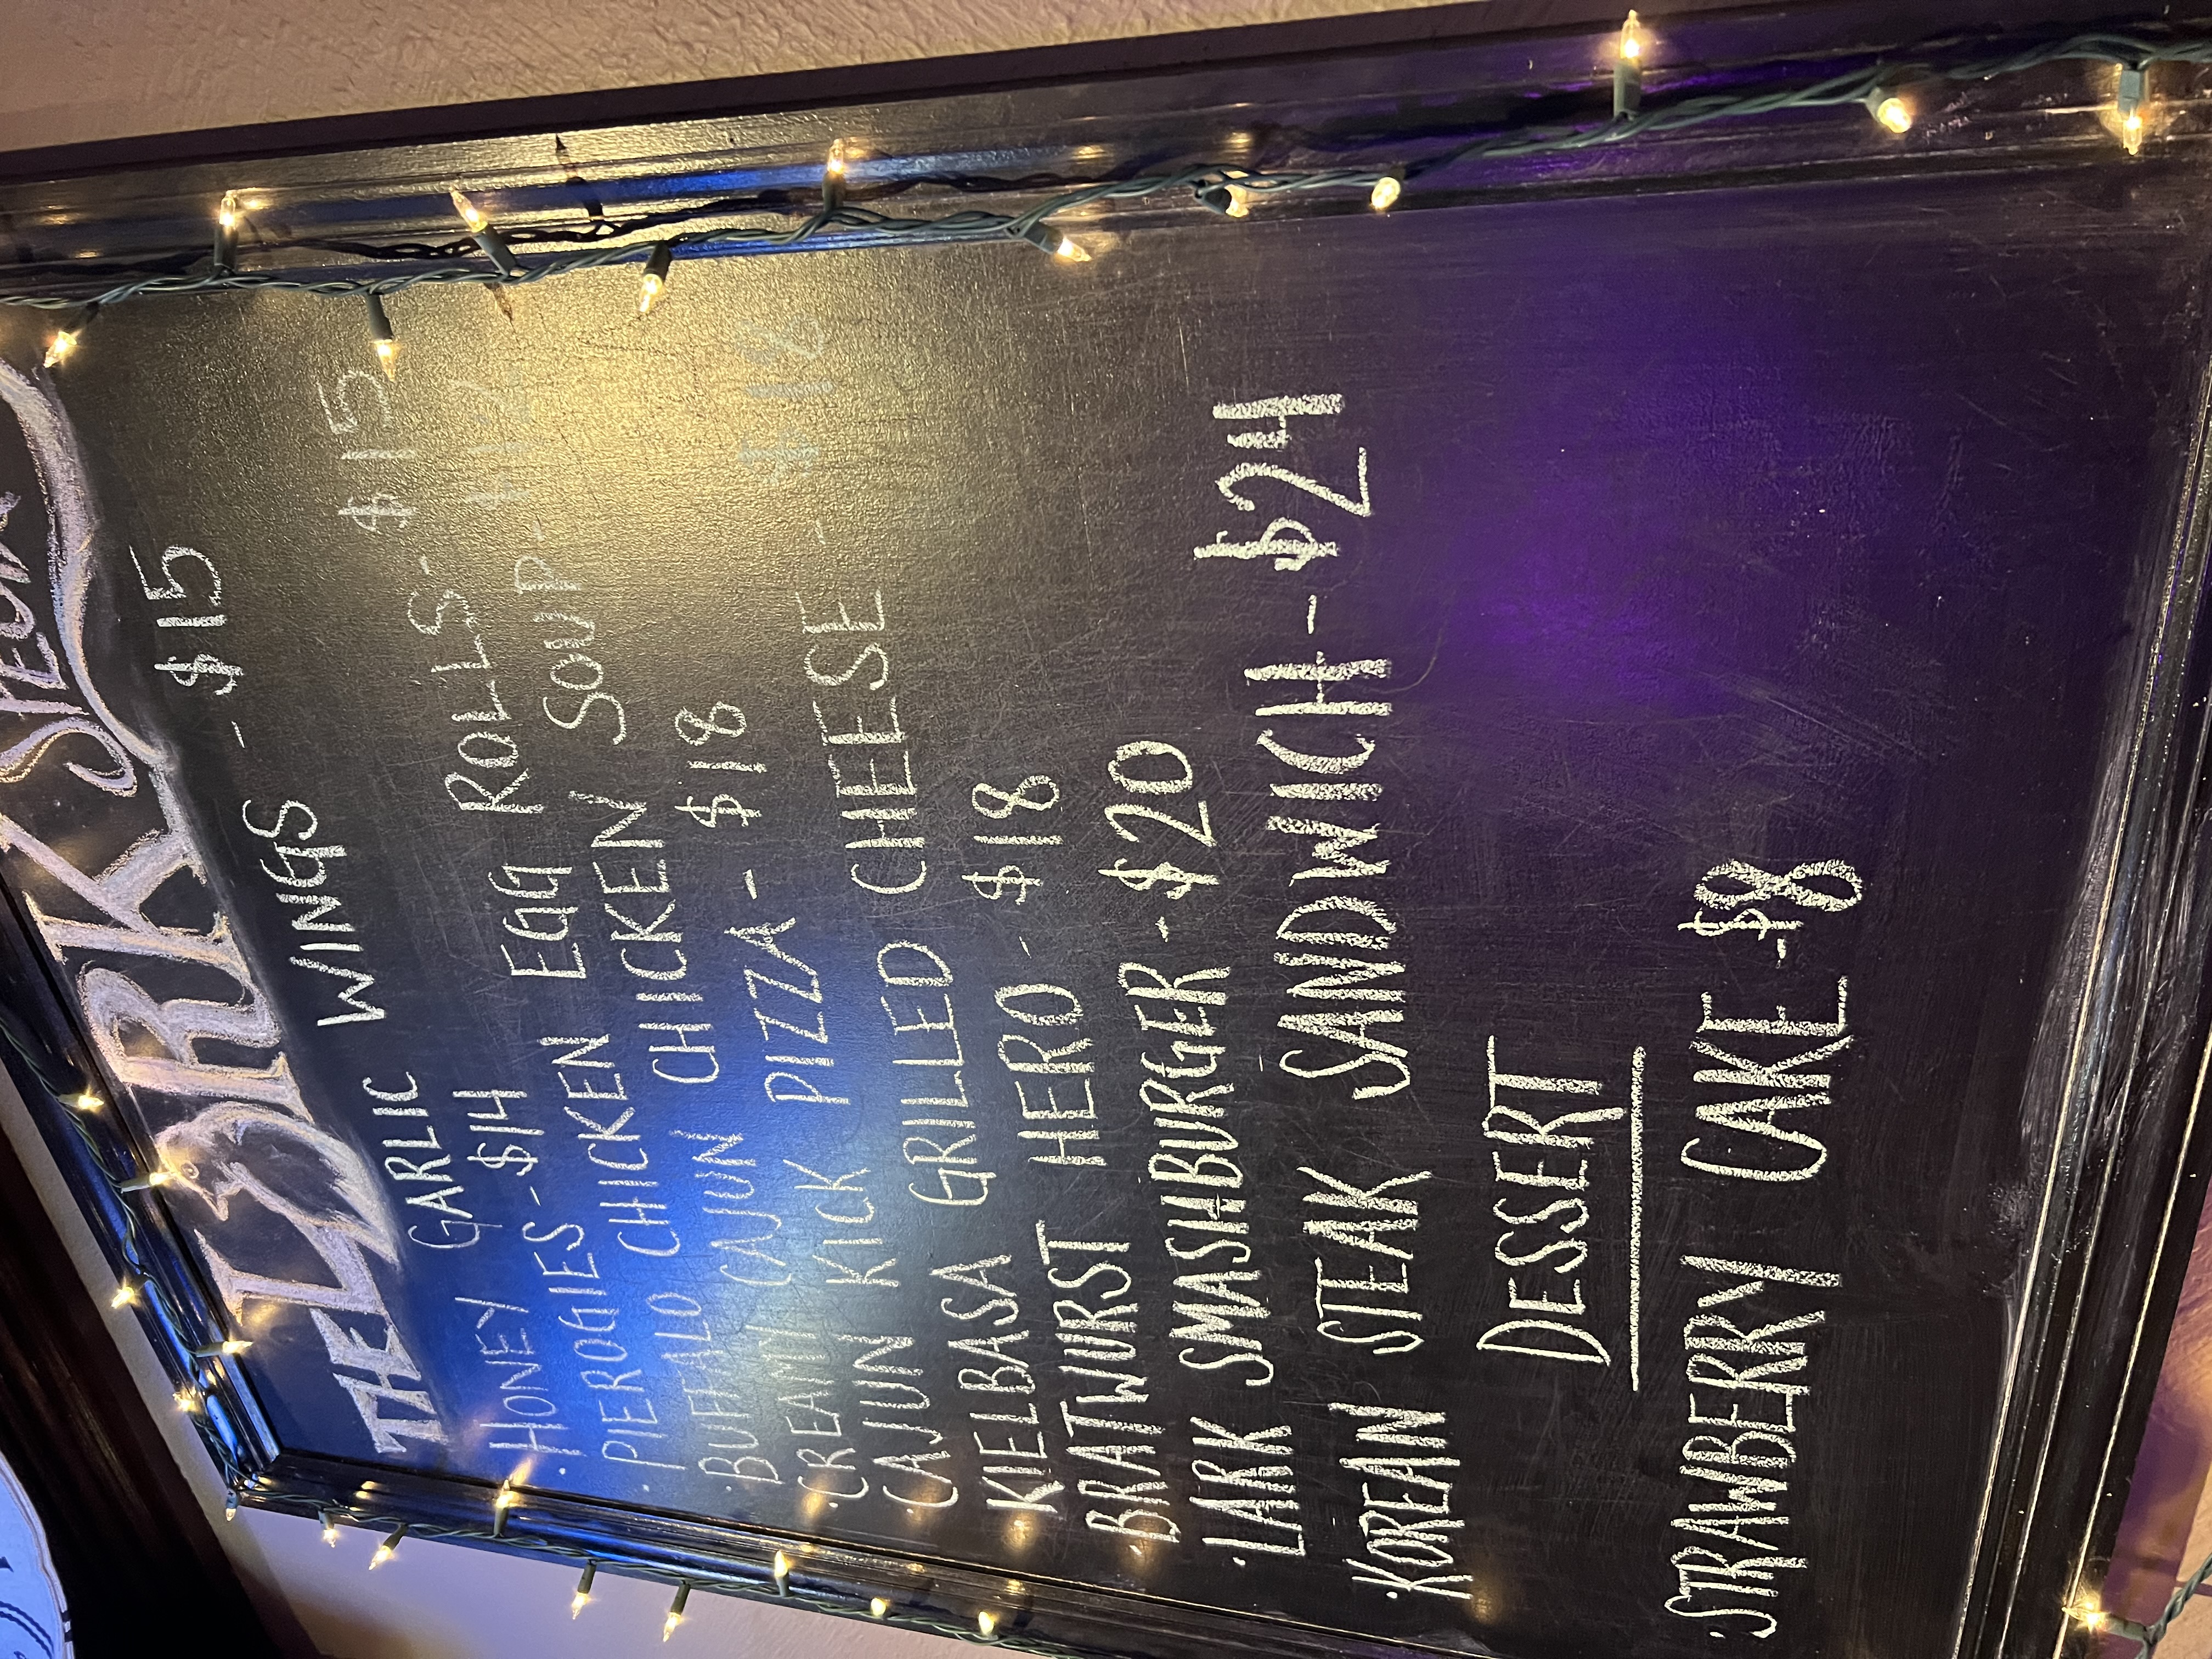 THE LARK
· HONEY GARLIC WINGS - $15
· PIEROGIES - $14
· BUFFALO CHICKEN EGG ROLLS - $15
· CREAMY CAJUN CHICKEN SOUP - $12
CAJUN KICK PIZZA - $18
KIELBASA GRILLED CHEESE -
· BRATWURST HERO - $18
· LARK SMASHBURGER - $20
· KOREAN STEAK SANDWICH - $24
DESSERT
· STRAWBERRY CAKE - $8